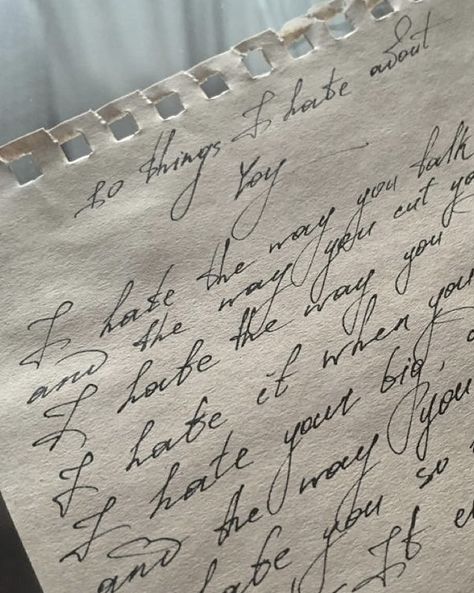 10 things I hate about
You
I hate the way you talk
and the way you cut yo
I hate the way you
I hate it when you
I hate your big,
and the way you
hate you so
It e